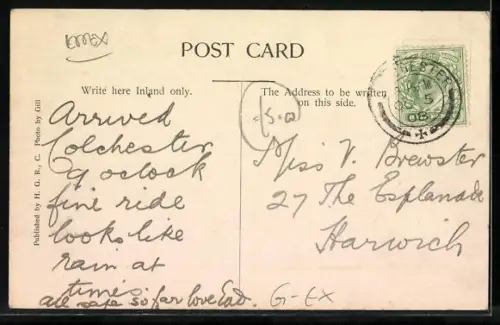 Essex
POST CARD
Write here Inland only.
The Address to be written
on this side.
Arrived
Colchester
9 oclock
fine ride
looks like
rain at
times.
all safe so far love
Miss V. Brewster
27 The Esplanade
Harwich
G-EX
Published by H. G. R., C. Photo by Gill
CHESTER
OC 5
06